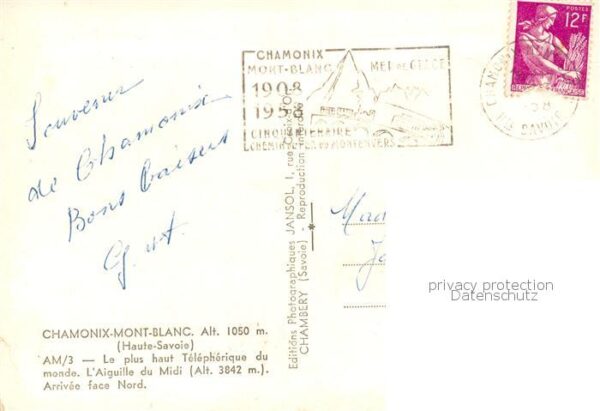 Souvenir
de Chamonix
Bons baisers
CHAMONIX-MONT-BLANC. Alt. 1050 m.
(Haute-Savoie)
AM/3 — Le plus haut Téléphérique du
monde. L'Aiguille du Midi (Alt. 3842 m.).
Arrivée face Nord.
Editions Photographiques JANSOL, 1, rue
CHAMBERY (Savoie) - Reproduction
CHAMONIX
MONT-BLANC
MER DE GLACE
1908
1958
CINQUANTENAIRE
CHEMIN DE FER DU MONTENVERS
POSTES
12F
privacy protection
Datenschutz